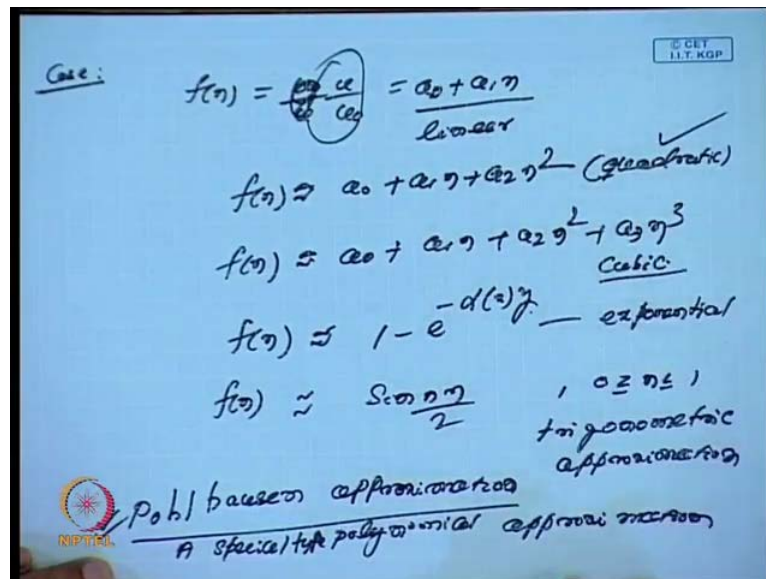 © CET
I.I.T. KGP
Case:
f(η) = u/u₀ = a₀ + a₁η
linear
f(η) ≈ a₀ + a₁η + a₂η² — (quadratic)
f(η) ≈ a₀ + a₁η + a₂η² + a₃η³
Cubic
f(η) ≈ 1 - e^(-α(x)y) — exponential
f(η) ≈ Sin πη/2 , 0 ≥ η ≤ 1
trigonometric
approximation
Pohlhausen approximation
A special type polynomial approximation
NPTEL